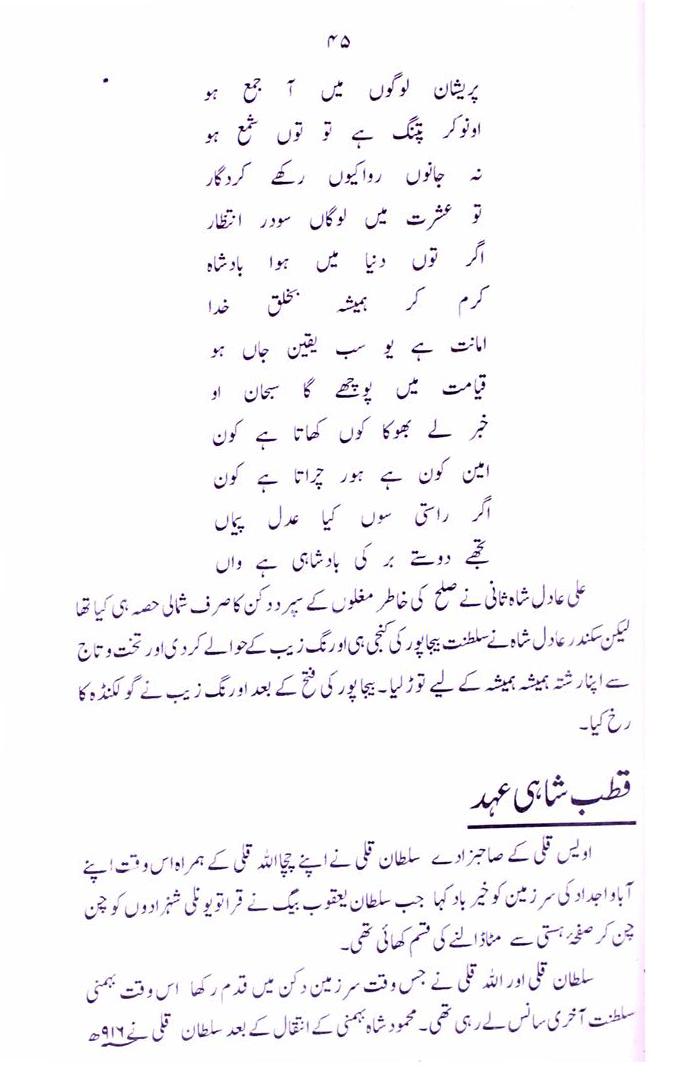 ۴۵
پریشان لوگوں میں آ جمع ہو
اونوکر پتنگ ہے تو توں شمع ہو
نہ جانوں رواکیوں رکھے کردگار
تو عشرت میں لوگاں سودر انتظار
اگر توں دنیا میں ہوا بادشاہ
کرم کر ہمیشہ بخلق خدا
امانت ہے یو سب یقین جاں ہو
قیامت میں پوچھے گا سبحان او
خبر لے بھوکا کوں کھاتا ہے کون
امین کون ہے ہور چراتا ہے کون
اگر راستی سوں کیا عدل پیماں
تجھے دوستے بر کی بادشاہی ہے واں
علی عادل شاہ ثانی نے صلح کی خاطر مغلوں کے سپرد دکن کا صرف شمالی حصہ ہی کیا تھا
لیکن سکندر عادل شاہ نے سلطنت بیجاپور کی کنجی ہی اورنگ زیب کے حوالے کردی اور تخت و تاج
سے اپنا رشتہ ہمیشہ ہمیشہ کے لیے توڑ لیا۔ بیجاپور کی فتح کے بعد اورنگ زیب نے گولکنڈہ کا
رخ کیا۔
قطب شاہی عہد
اویس قلی کے صاحبزادے سلطان قلی نے اپنے چچا اللہ قلی کے ہمراہ اس وقت اپنے
آباو اجداد کی سرزمین کو خیر باد کہا جب سلطان یعقوب بیگ نے قراقویونلی شہزادوں کو چن
چن کر صفحۂ ہستی سے مٹا ڈالنے کی قسم کھائی تھی۔
سلطان قلی اور اللہ قلی نے جس وقت سرزمین دکن میں قدم رکھا اس وقت بہمنی
سلطنت آخری سانس لے رہی تھی۔ محمود شاہ بہمنی کے انتقال کے بعد سلطان قلی نے ۹۱۶ھ